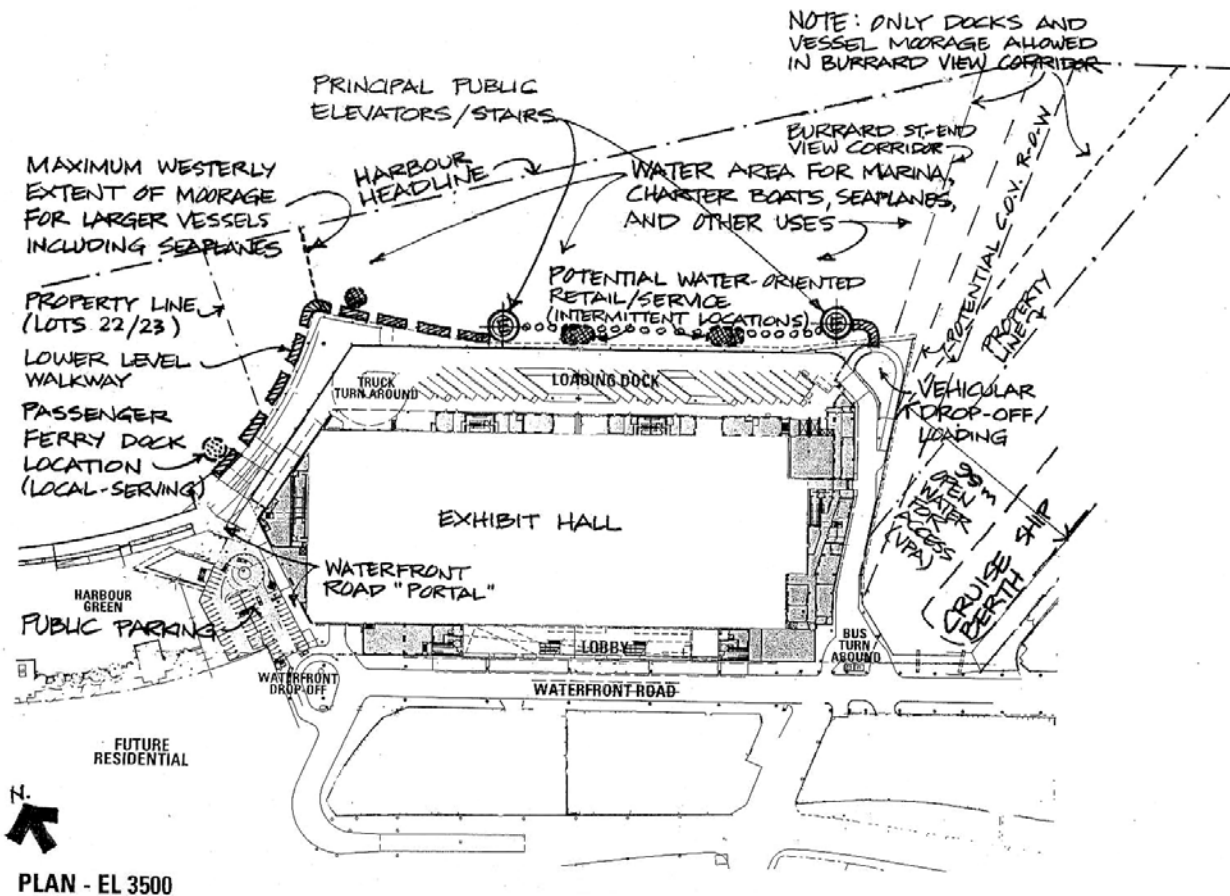 NOTE: ONLY DOCKS AND
VESSEL MOORAGE ALLOWED
IN BURRARD VIEW CORRIDOR
PRINCIPAL PUBLIC
ELEVATORS/STAIRS
BURRARD ST.-END
VIEW CORRIDOR
MAXIMUM WESTERLY
EXTENT OF MOORAGE
FOR LARGER VESSELS
INCLUDING SEAPLANES
HARBOUR
HEADLINE
WATER AREA FOR MARINA,
CHARTER BOATS, SEAPLANES,
AND OTHER USES
POTENTIAL C.O.V. R.O.W
PROPERTY
LINE
PROPERTY LINE
(LOTS 22/23)
POTENTIAL WATER-ORIENTED
RETAIL/SERVICE
(INTERMITTENT LOCATIONS)
LOWER LEVEL
WALKWAY
TRUCK
TURN AROUND
LOADING DOCK
VEHICULAR
DROP-OFF/
LOADING
PASSENGER
FERRY DOCK
LOCATION
(LOCAL-SERVING)
99 m
OPEN
WATER
FOR
ACCESS
(VPA)
EXHIBIT HALL
CRUISE SHIP
BERTH
WATERFRONT
ROAD "PORTAL"
HARBOUR
GREEN
PUBLIC PARKING
LOBBY
BUS
TURN/
AROUND
WATERFRONT
DROP-OFF
WATERFRONT ROAD
FUTURE
RESIDENTIAL
N.
PLAN - EL 3500